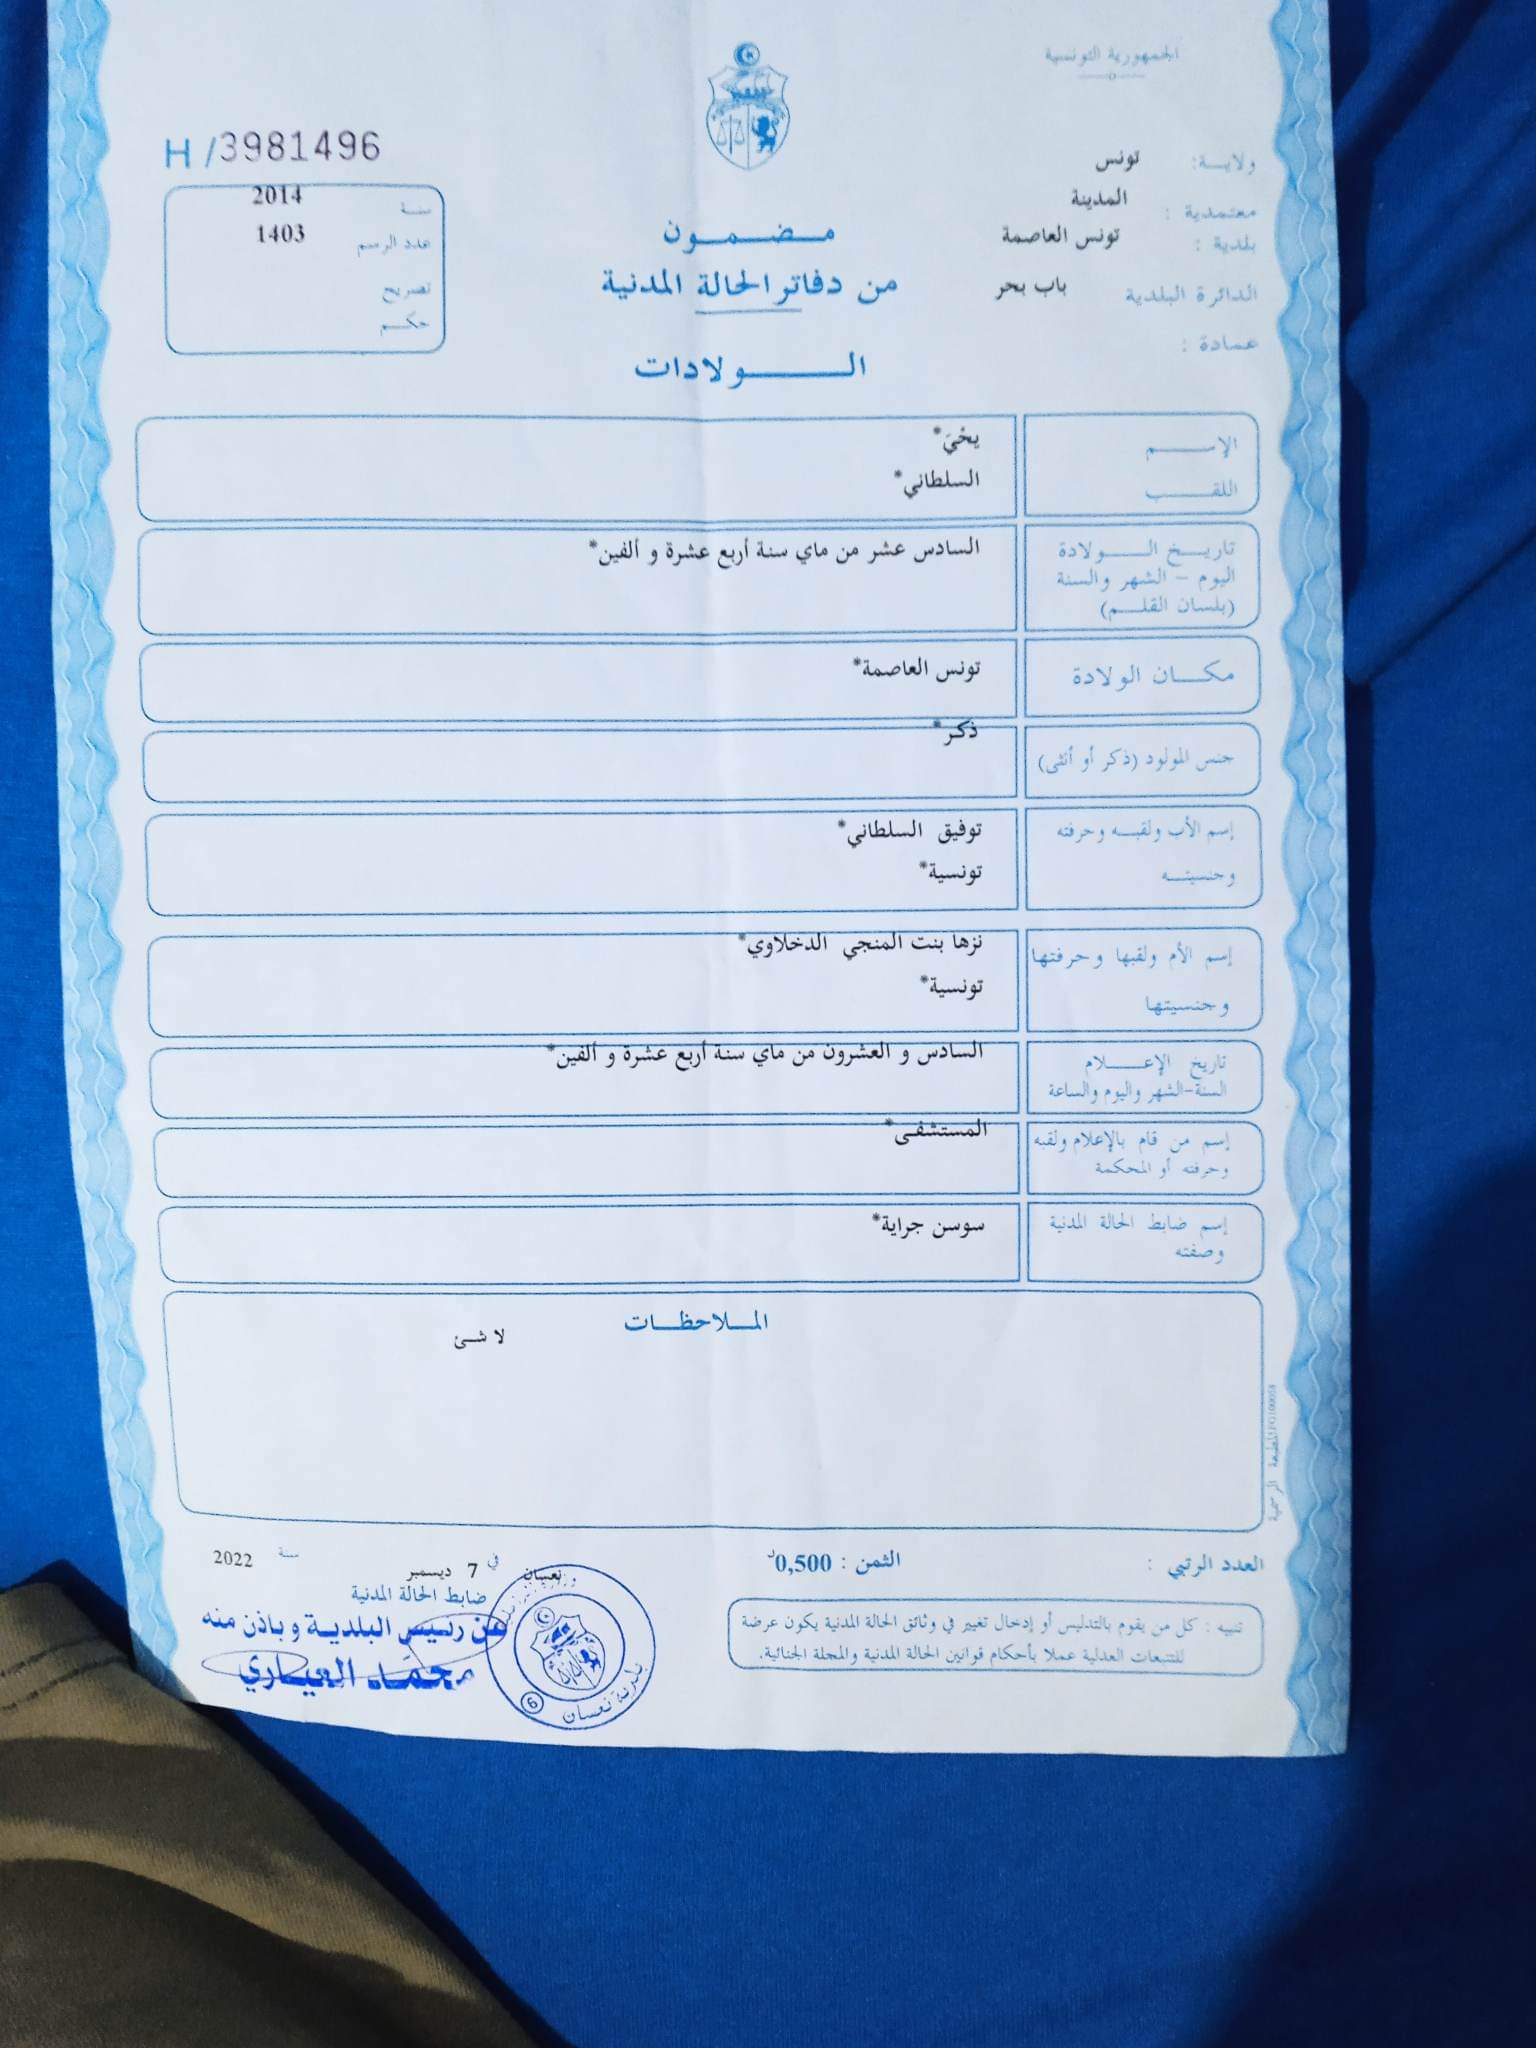 الجمهورية التونسية
H / 3981496
ولايـة: تونس
معتمدية : المدينة
بلدية : تونس العاصمة
الدائرة البلدية باب بحر
عمادة :
سنة 2014
عدد الرسم 1403
تصريح
حكم
مضمون
من دفاتر الحالة المدنية
الولادات
الإسم يحْيَ*
اللقب السلطاني*
تاريخ الولادة السادس عشر من ماي سنة أربع عشرة و ألفين*
اليوم - الشهر والسنة
(بلسان القلم)
مكان الولادة تونس العاصمة*
جنس المولود (ذكر أو أنثى) ذكر*
إسم الأب ولقبه وحرفته توفيق السلطاني*
وجنسيته تونسية*
إسم الأم ولقبها وحرفتها نزها بنت المنجي الدخلاوي*
وجنسيتها تونسية*
تاريخ الإعلام السادس و العشرون من ماي سنة أربع عشرة و ألفين*
السنة-الشهر واليوم والساعة
إسم من قام بالإعلام ولقبه المستشفى*
وحرفته أو المحكمة
إسم ضابط الحالة المدنية سوسن جراية*
وصفته
الملاحظات
لا شئ
المطبعة الرسمية
العدد الرتبي :
الثمن : 0,500د
نعسان في 7 ديسمبر سنة 2022
ضابط الحالة المدنية
عن رئيس البلدية وباذن منه
محمد العياري
بلدية نعسان
6
تنبيه : كل من يقوم بالتدليس أو إدخال تغيير في وثائق الحالة المدنية يكون عرضة
للتتبعات العدلية عملا بأحكام قوانين الحالة المدنية والمجلة الجنائية.